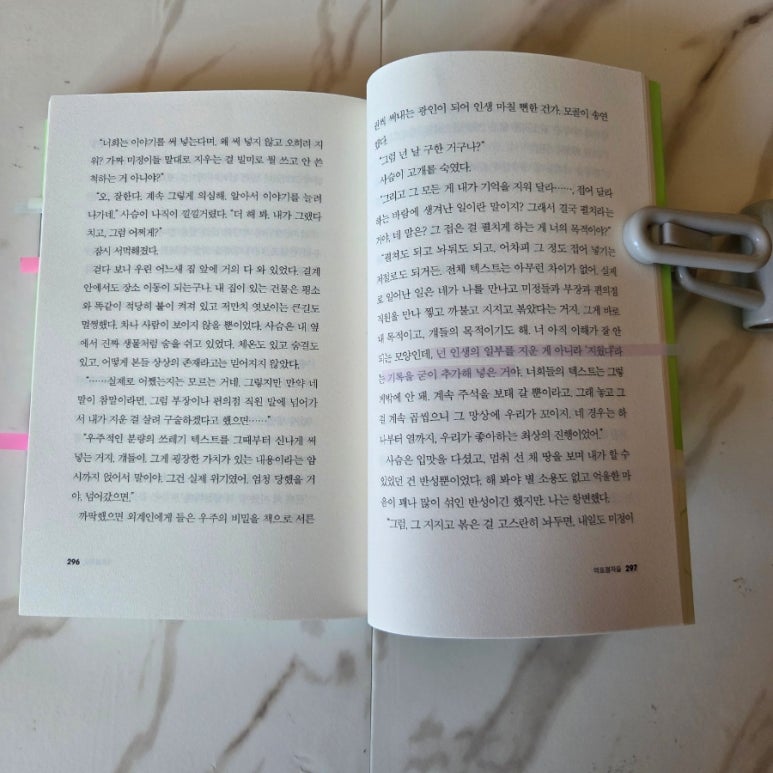 "너희는 이야기를 써 넣는다며, 왜 써 넣지 않고 오히려 지
워? 가짜 미정이들 말대로 지우는 걸 빌미로 뭘 쓰고 안 쓴
척하는 거 아니야?"
"오, 잘한다. 계속 그렇게 의심해. 알아서 이야기를 늘려
나가네." 사슴이 나직이 낄낄거렸다. "더 해 봐. 내가 그랬다
치고, 그럼 어쩌게?"
잠시 서먹해졌다.
걷다 보니 우린 어느새 집 앞에 거의 다 와 있었다. 길게
안에서도 장소 이동이 되는구나. 내 집이 있는 건물은 평소
와 똑같이 적당히 불이 켜져 있고 저만치 엿보이는 큰길도
멀쩡했다. 차나 사람이 보이지 않을 뿐이었다. 사슴은 내 옆
에서 진짜 생물처럼 숨을 쉬고 있었다. 체온도 있고 숨결도
있고, 어떻게 본들 상상의 존재라고는 믿어지지 않았다.
"……실제로 어쨌는지는 모르는 거네. 그렇지만 만약 네
말이 참말이라면, 그럼 부장이나 편의점 직원 말에 넘어가
서 내가 지운 걸 살려 구술하겠다고 했으면……"
"우주적인 분량의 쓰레기 텍스트를 그때부터 신나게 써
넣는 거지, 걔들이. 그게 굉장한 가치가 있는 내용이라는 암
시까지 얹어서 말이야. 그건 실제 위기였어. 엄청 당했을 거
야, 넘어갔으면."
까딱했으면 외계인에게 들은 우주의 비밀을 책으로 서른
296
권씩 써내는 광인이 되어 인생 마칠 뻔한 건가. 모골이 송연
했다.
"그럼 넌 날 구한 거구나?"
사슴이 고개를 숙였다.
"그리고 그 모든 게 내가 기억을 지워 달라……, 접어 달라
하는 바람에 생겨난 일이란 말이지? 그래서 결국 펼치라는
거야, 네 말은? 그 접은 걸 펼치게 하는 게 너의 목적이야?"
"펼쳐도 되고 놔둬도 되고, 어차피 그 정도 접어 넣기는
저절로도 되거든. 전체 텍스트는 아무런 차이가 없어. 실제
로 일어난 일은 네가 나를 만나고 미정들과 부장과 편의점
직원을 만나 찧고 까불고 지지고 볶았다는 거지. 그게 바로
내 목적이고, 걔들의 목적이기도 해. 너 아직 이해가 잘 안
되는 모양인데, 넌 인생의 일부를 지운 게 아니라 '지웠다'라
는 기록을 굳이 추가해 넣은 거야. 너희들의 텍스트는 그렇
게밖에 안 돼. 계속 주석을 보태 갈 뿐이라고. 그래 놓고 그
걸 계속 곱씹으니 그 망상에 우리가 꼬이지. 네 경우는 하
나부터 열까지, 우리가 좋아하는 최상의 진행이었어."
사슴은 입맛을 다셨고, 멈춰 선 채 땅을 보며 내가 할 수
있었던 건 반성뿐이었다. 해 봐야 별 소용도 없고 억울한 마
음이 꽤나 많이 섞인 반성이긴 했지만, 나는 항변했다.
"그럼, 그 지지고 볶은 걸 고스란히 놔두면, 내일도 미정이
297